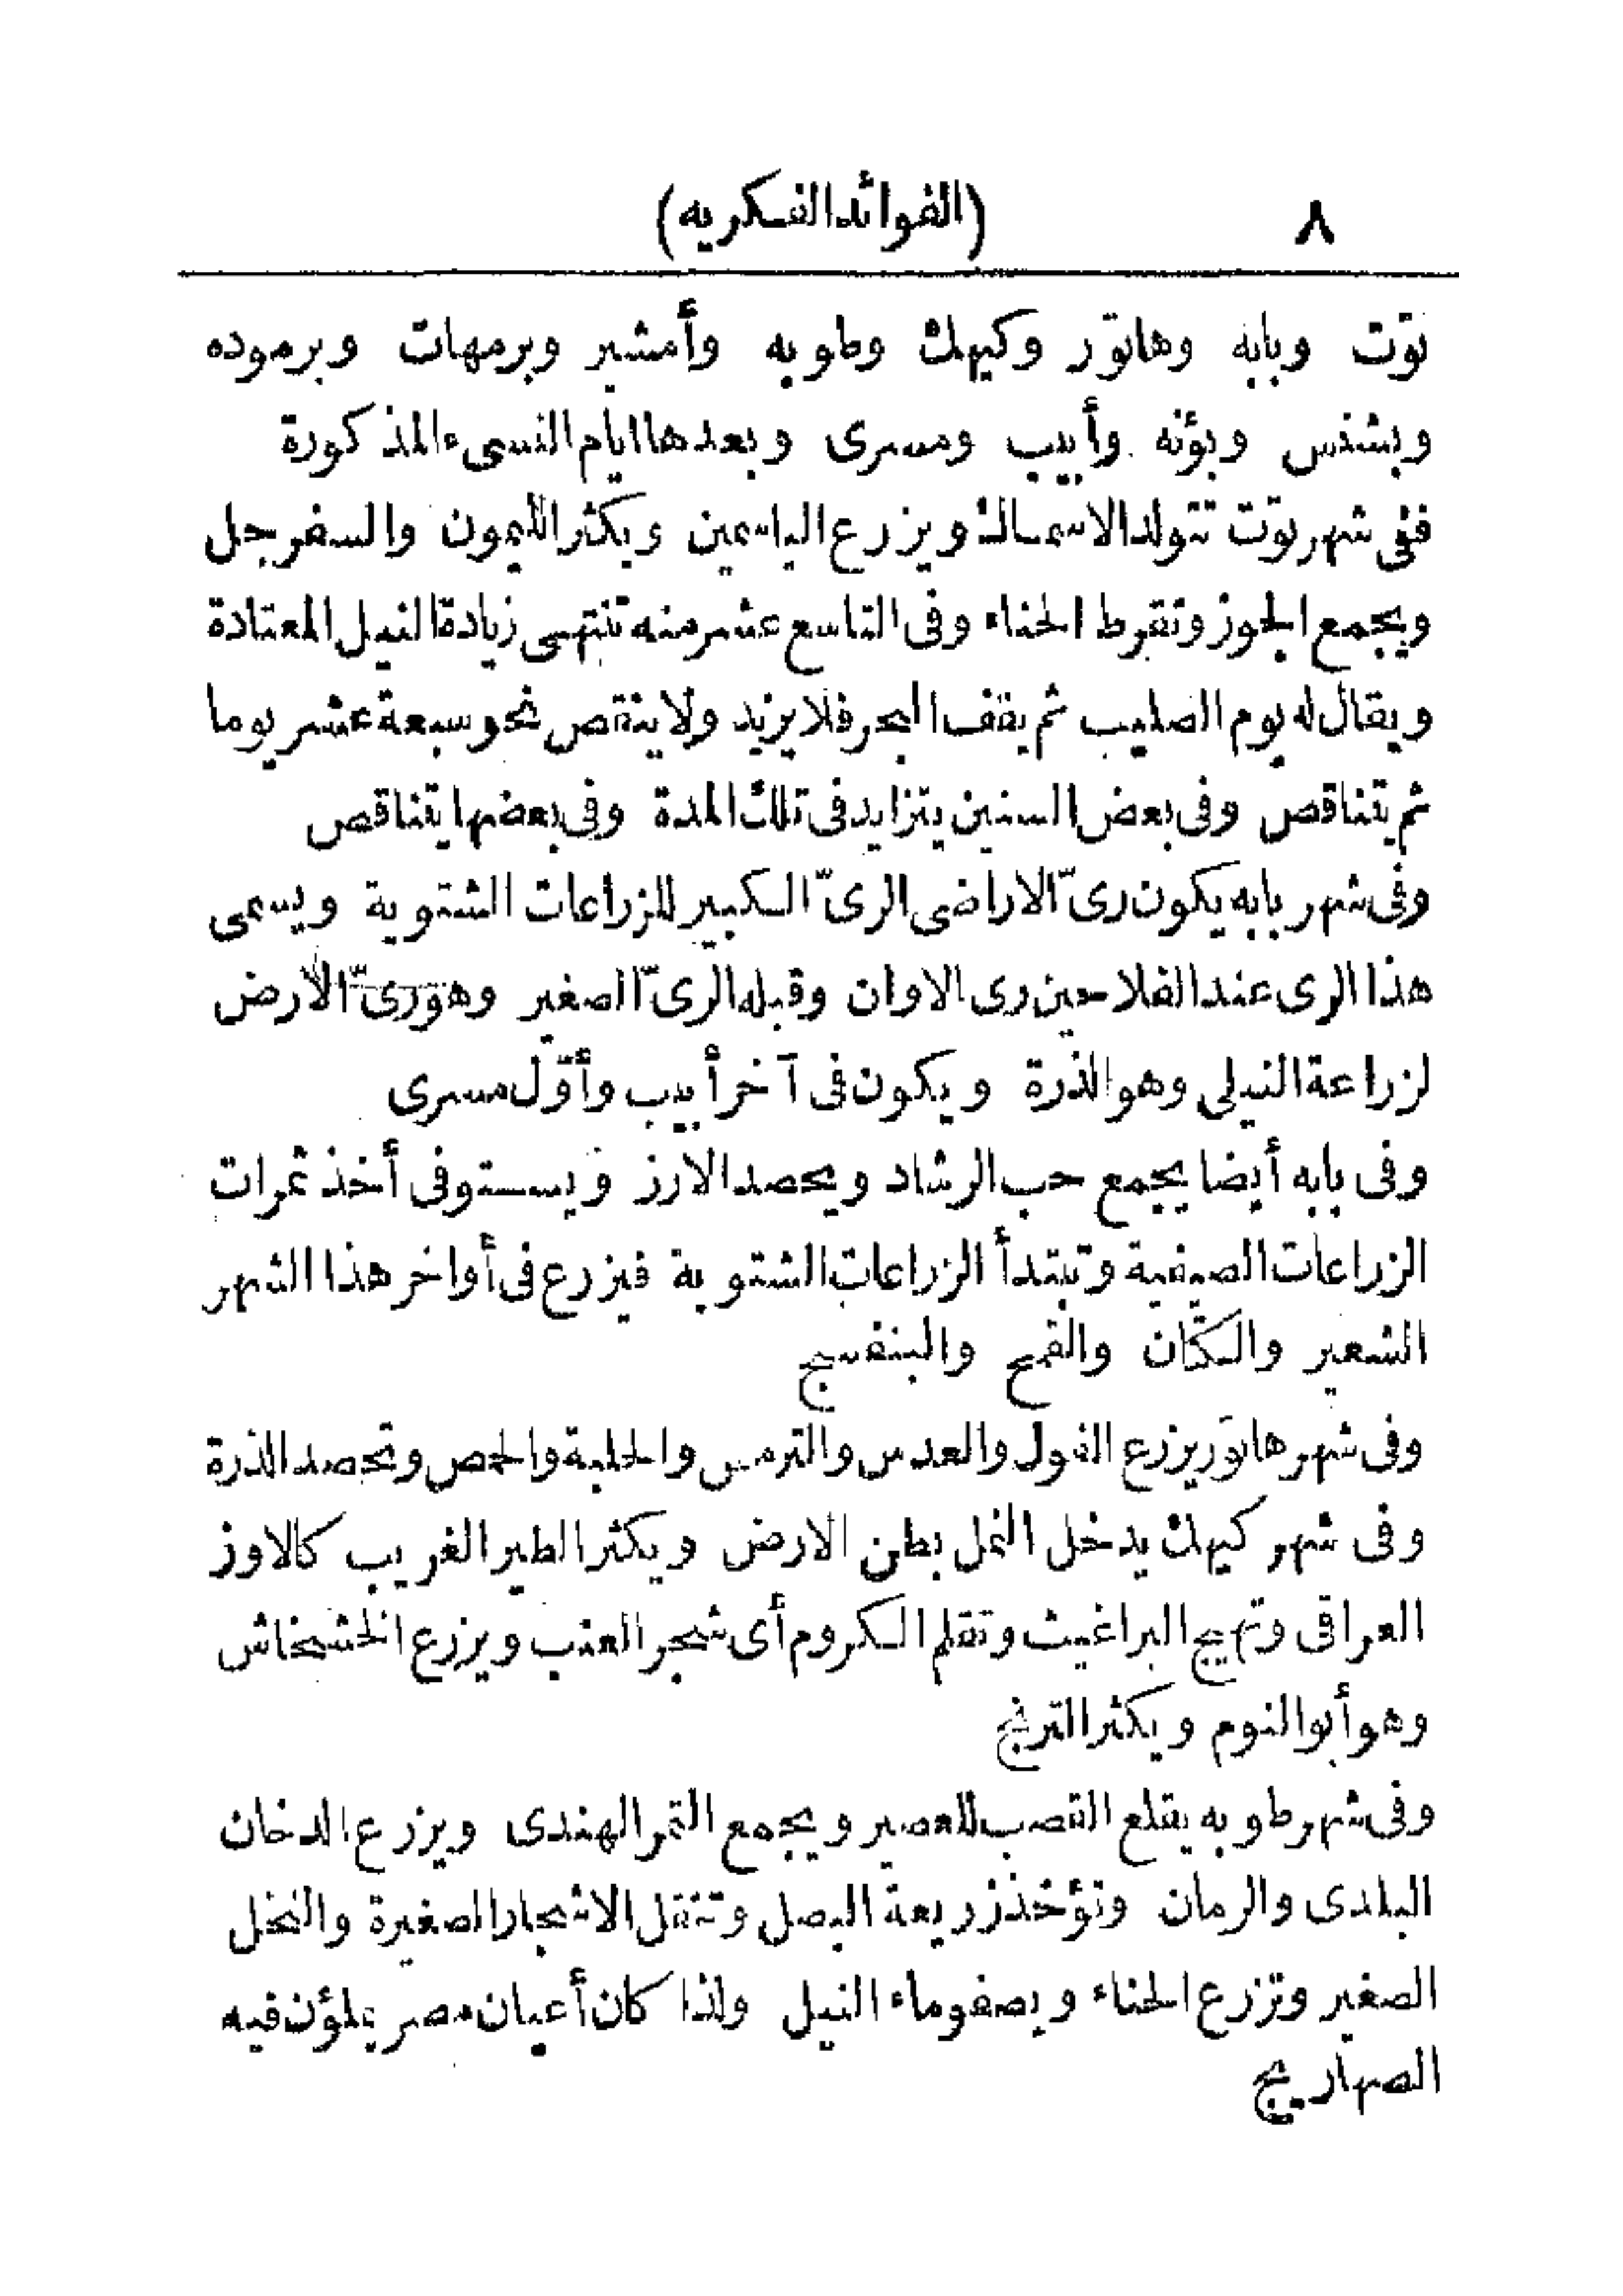 ٨ (الفوائد الفكريه)
توت وبابه وهاتور وكيهك وطوبه وأمشير وبرمهات وبرموده
وبشنس وبؤنه وأبيب ومسرى وبعدها ايام النسىء المذكورة
ففى شهر توت تتولد الاسماك ويزرع الياسمين ويكثر الليمون والسفرجل
ويجمع الجوز وتقرط الحناء وفى التاسع عشر منه تنتهى زيادة النيل المعتادة
ويقال له يوم الصليب ثم يقف البحر فلا يزيد ولا ينقص نحو سبعة عشر يوما
ثم يتناقص وفى بعض السنين يتزايد فى تلك المدة وفى بعضها يتناقص
وفى شهر بابه يكون رىّ الاراضى الرىّ الكبير للزراعات الشتوية ويسمى
هذا الرى عند الفلاحين رى الاوان وقبله الرىّ الصغير وهو رىّ الأرض
لزراعة النيلى وهو الذرة ويكون فى آخر أبيب وأوّل مسرى
وفى بابه أيضا يجمع حب الرشاد ويحصد الارز ويستوفى أخذ ثمرات
الزراعات الصيفية وتبتدأ الزراعات الشتوية فيزرع فى أواخر هذا الشهر
الشعير والكتان والقمح والبنفسج
وفى شهر هاتور يزرع الفول والعدس والترمس والحلبة والحمص وتحصد الذرة
وفى شهر كيهك يدخل النمل بطن الارض ويكثر الطير الغريب كالاوز
العراقى وتهيج البراغيث وتقلم الكروم أى شجر العنب ويزرع الخشخاش
وهو أبو النوم ويكثر الترنج
وفى شهر طوبه يقلع القصب للعصير ويجمع التمر الهندى ويزرع الدخان
البلدى والرمان وتؤخذ زريعة البصل وتنقل الاشجار الصغيرة والنخل
الصغير وتزرع الحناء ويصفو ماء النيل ولذا كان أعيان مصر يملؤن فيه
الصهاريج